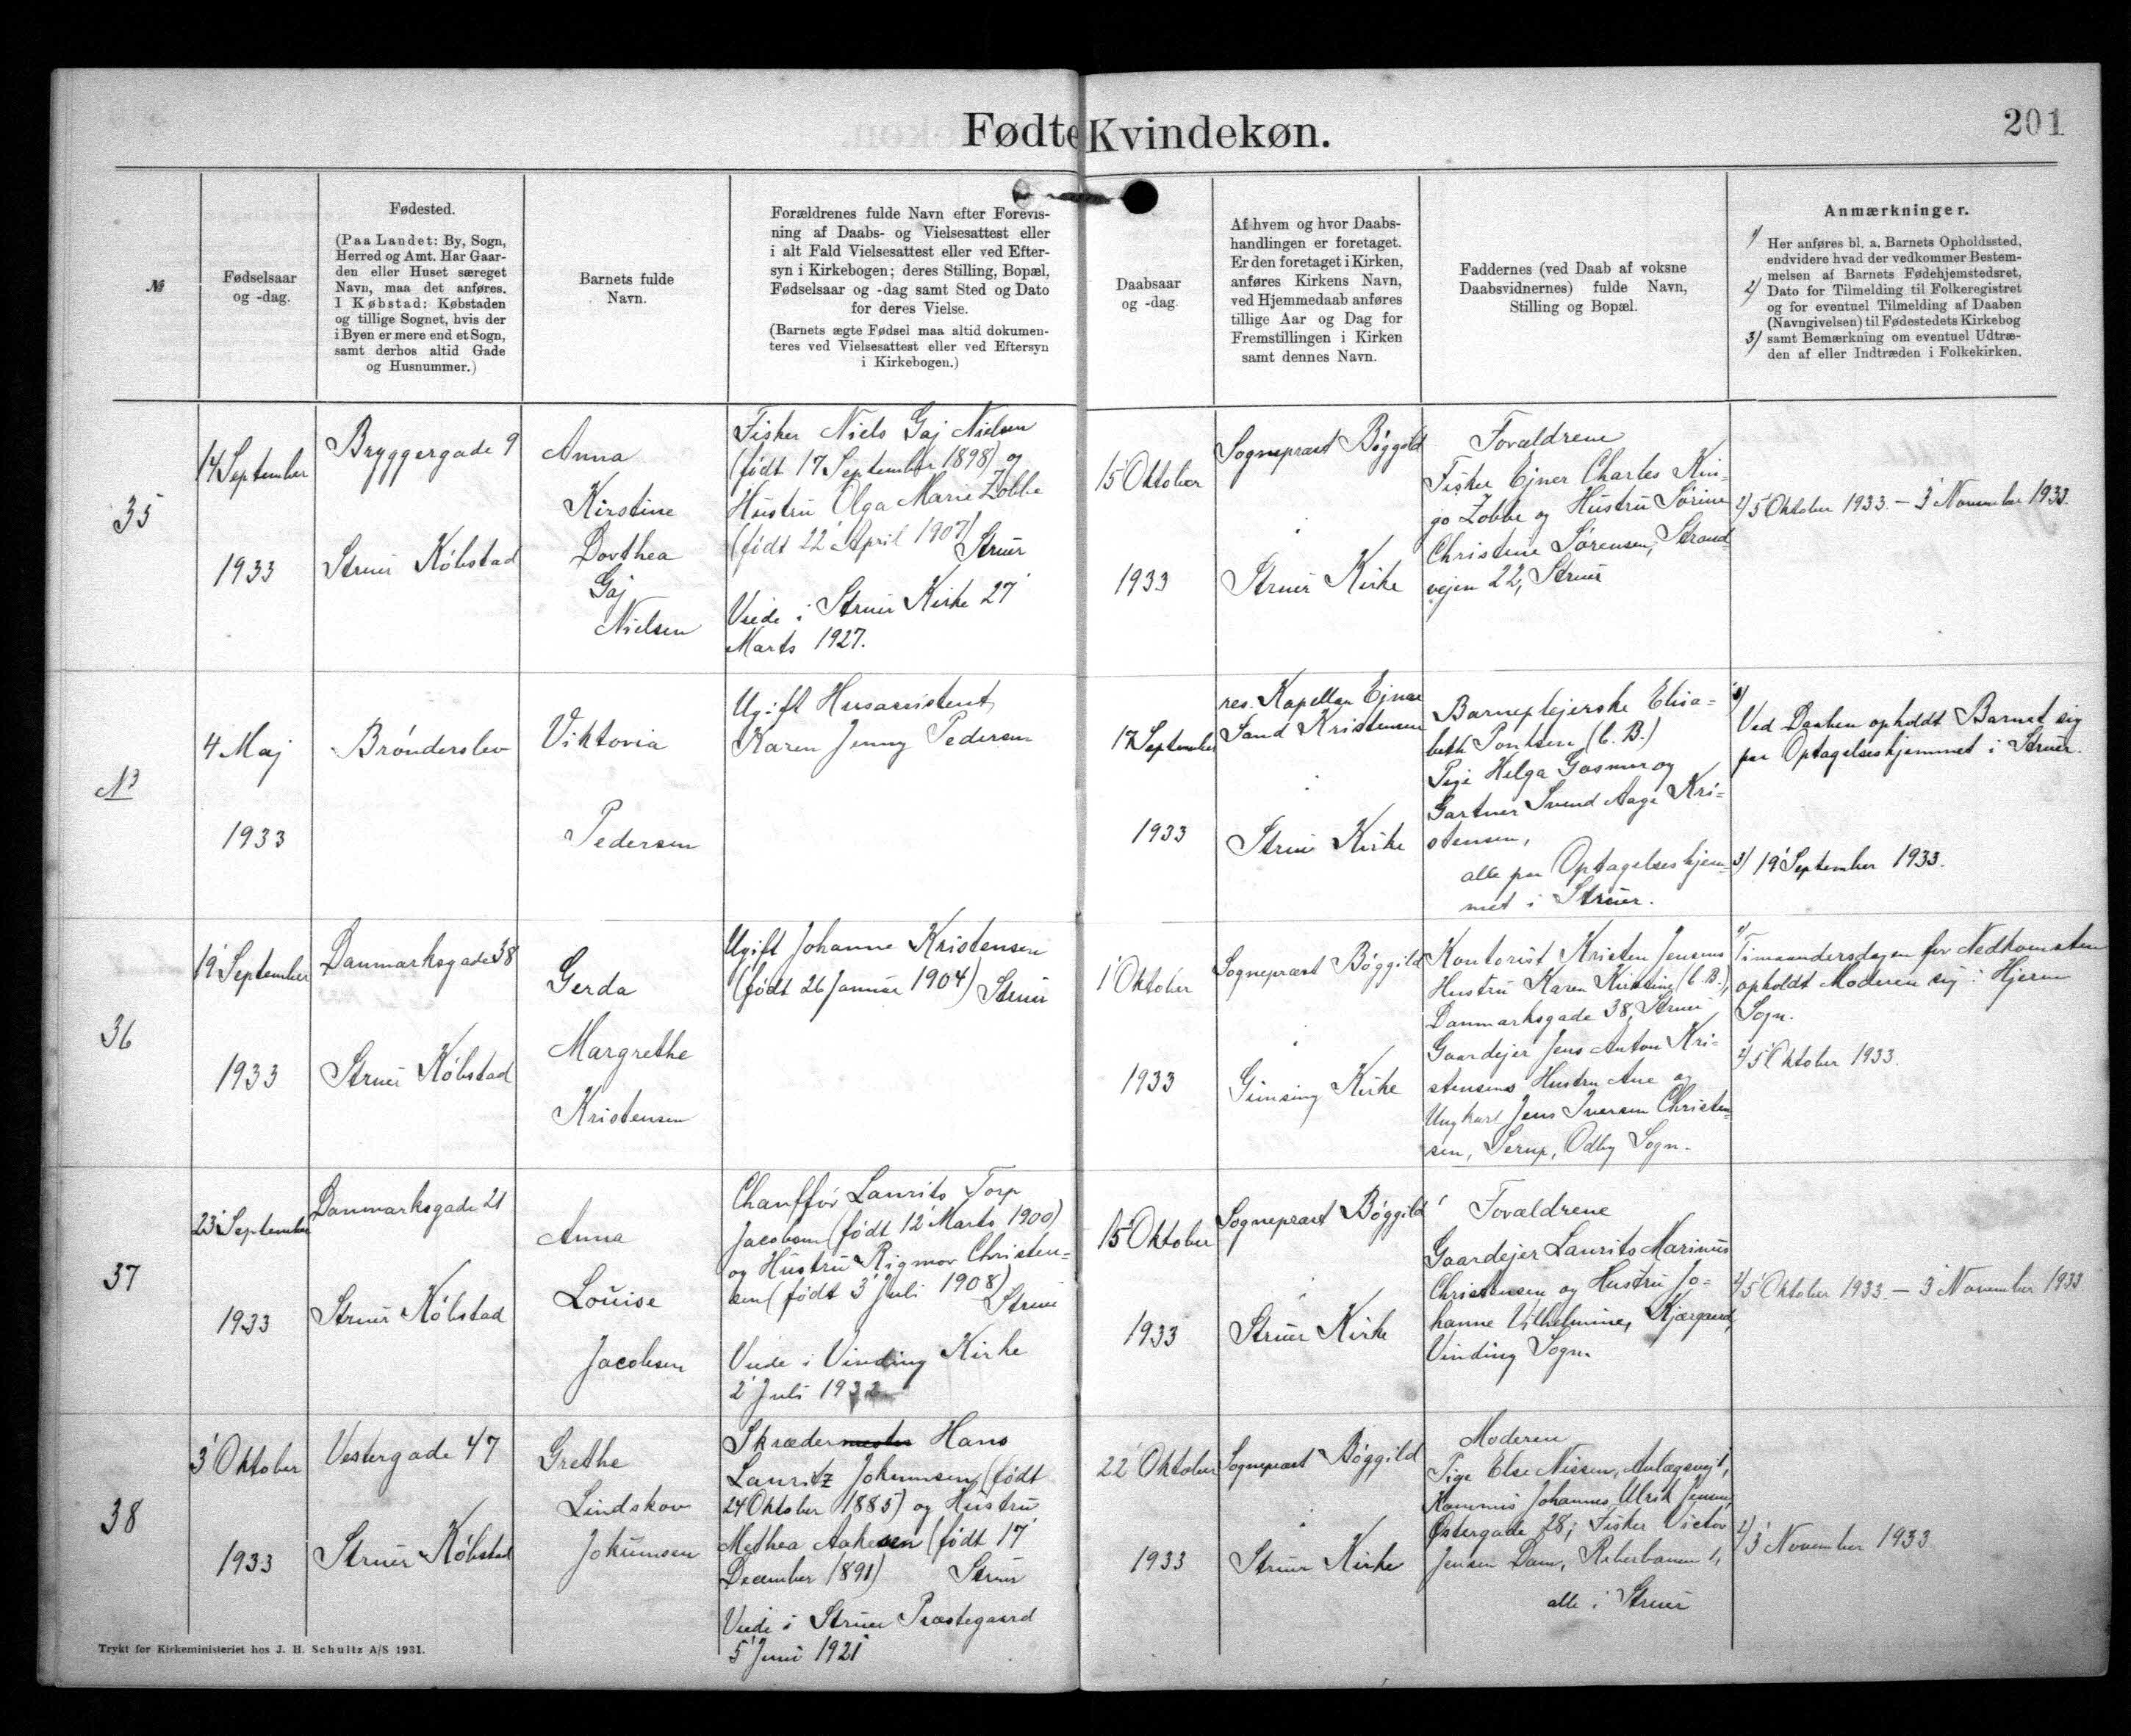 Fødte Kvindekøn.
201
№
Fødselsaar
og -dag.
Fødested.
(Paa Landet: By, Sogn,
Herred og Amt. Har Gaar-
den eller Huset særeget
Navn, maa det anføres.
I Købstad: Købstaden
og tillige Sognet, hvis der
i Byen er mere end et Sogn,
samt derhos altid Gade
og Husnummer.)
Barnets fulde
Navn.
Forældrenes fulde Navn efter Forevis-
ning af Daabs- og Vielsesattest eller
i alt Fald Vielsesattest eller ved Efter-
syn i Kirkebogen; deres Stilling, Bopæl,
Fødselsaar og -dag samt Sted og Dato
for deres Vielse.
(Barnets ægte Fødsel maa altid dokumen-
teres ved Vielsesattest eller ved Eftersyn
i Kirkebogen.)
Daabsaar
og -dag.
Af hvem og hvor Daabs-
handlingen er foretaget.
Er den foretaget i Kirken,
anføres Kirkens Navn,
ved Hjemmedaab anføres
tillige Aar og Dag for
Fremstillingen i Kirken
samt dennes Navn.
Faddernes (ved Daab af voksne
Daabsvidnernes) fulde Navn,
Stilling og Bopæl.
Anmærkninger.
1) Her anføres bl. a. Barnets Opholdssted,
endvidere hvad der vedkommer Bestem-
melsen af Barnets Fødehjemstedsret,
2) Dato for Tilmelding til Folkeregistret
og for eventuel Tilmelding af Daaben
(Navngivelsen) til Fødestedets Kirkebog
3) samt Bemærkning om eventuel Udtræ-
den af eller Indtræden i Folkekirken.
35
14 September
1933
Bryggergade 9
Struer Købstad
Anna
Kirstine
Dorthea
Gaj
Nielsen
Fisker Niels Gaj Nielsen
(født 17 September 1898) og
Hustru Olga Marie Zobbe
(født 22 April 1907)
Struer
Viede i Struer Kirke 27
Marts 1927.
15 Oktober
1933
Sognepræst Bøggild
Struer Kirke
Forældrene
Fisker Ejner Charles Kin-
go Zobbe og Hustru Sørine
Christine Sørensen, Strand-
vejen 22, Struer
2) 5 Oktober 1933. – 3 November 1933.
NB
4 Maj
1933
Brønderslev
Viktoria
Pedersen
Ugift Husassistent
Karen Jenny Pedersen
17 September
1933
res. Kapellan Ejnar
Sand Kristensen
Struer Kirke
Barneplejerske Elisa-
beth Poulsen (b. B.)
Pige Helga Gosmer og
Gartner Svend Aage Kri-
stensen,
alle paa Optagelseshjem-
met i Struer.
1)
Ved Daaben opholdt Barnet sig
paa Optagelseshjemmet i Struer.
3) 19 September 1933.
36
19 September
1933
Danmarksgade 38
Struer Købstad
Gerda
Margrethe
Kristensen
Ugift Johanne Kristensen
(født 26 Januar 1904)
Struer
1 Oktober
1933
Sognepræst Bøggild
Gimsing Kirke
Kontorist Kristen Jensens
Hustru Karen Kirstine (b. B.),
Danmarksgade 38, Struer
Gaardejer Jens Anton Kri-
stensens Hustru Ane og
Ungkarl Jens Iversen Christen-
sen, Serup, Odby Sogn.
1)
Timaanedersdagen før Nedkomsten
opholdt Moderen sig i Hjerm
Sogn.
2) 5 Oktober 1933.
37
23 September
1933
Danmarksgade 21
Struer Købstad
Anna
Louise
Jacobsen
Chauffør Laurits Torp
Jacobsen (født 12 Marts 1900)
og Hustru Rigmor Christen-
sen (født 3 Juli 1908)
Struer
Viede i Vinding Kirke
2 Juli 1932
15 Oktober
1933
Sognepræst Bøggild
Struer Kirke
Forældrene
Gaardejer Laurits Marinus
Christensen og Hustru Jo-
hanne Vilhelmine, Kjærgaard,
Vinding Sogn
2) 5 Oktober 1933. – 3 November 1933
38
3 Oktober
1933
Vestergade 47
Struer Købstad
Grethe
Lindskov
Johumsen
Skrædermester Hans
Lauritz Johumsen (født
24 Oktober 1885) og Hustru
Methea Aakesen (født 17
December 1891)
Struer
Viede i Struer Præstegaard
5 Juni 1921
22 Oktober
1933
Sognepræst Bøggild
Struer Kirke
Moderen
Pige Else Nissen, Anlægsvej 1,
Kommis Johannes Ulrik Jensen,
Østergade 28; Fisker Victor
Jensen Dam,
alle i Struer
2) 3 November 1933
Trykt for Kirkeministeriet hos J. H. Schultz A/S 1931.